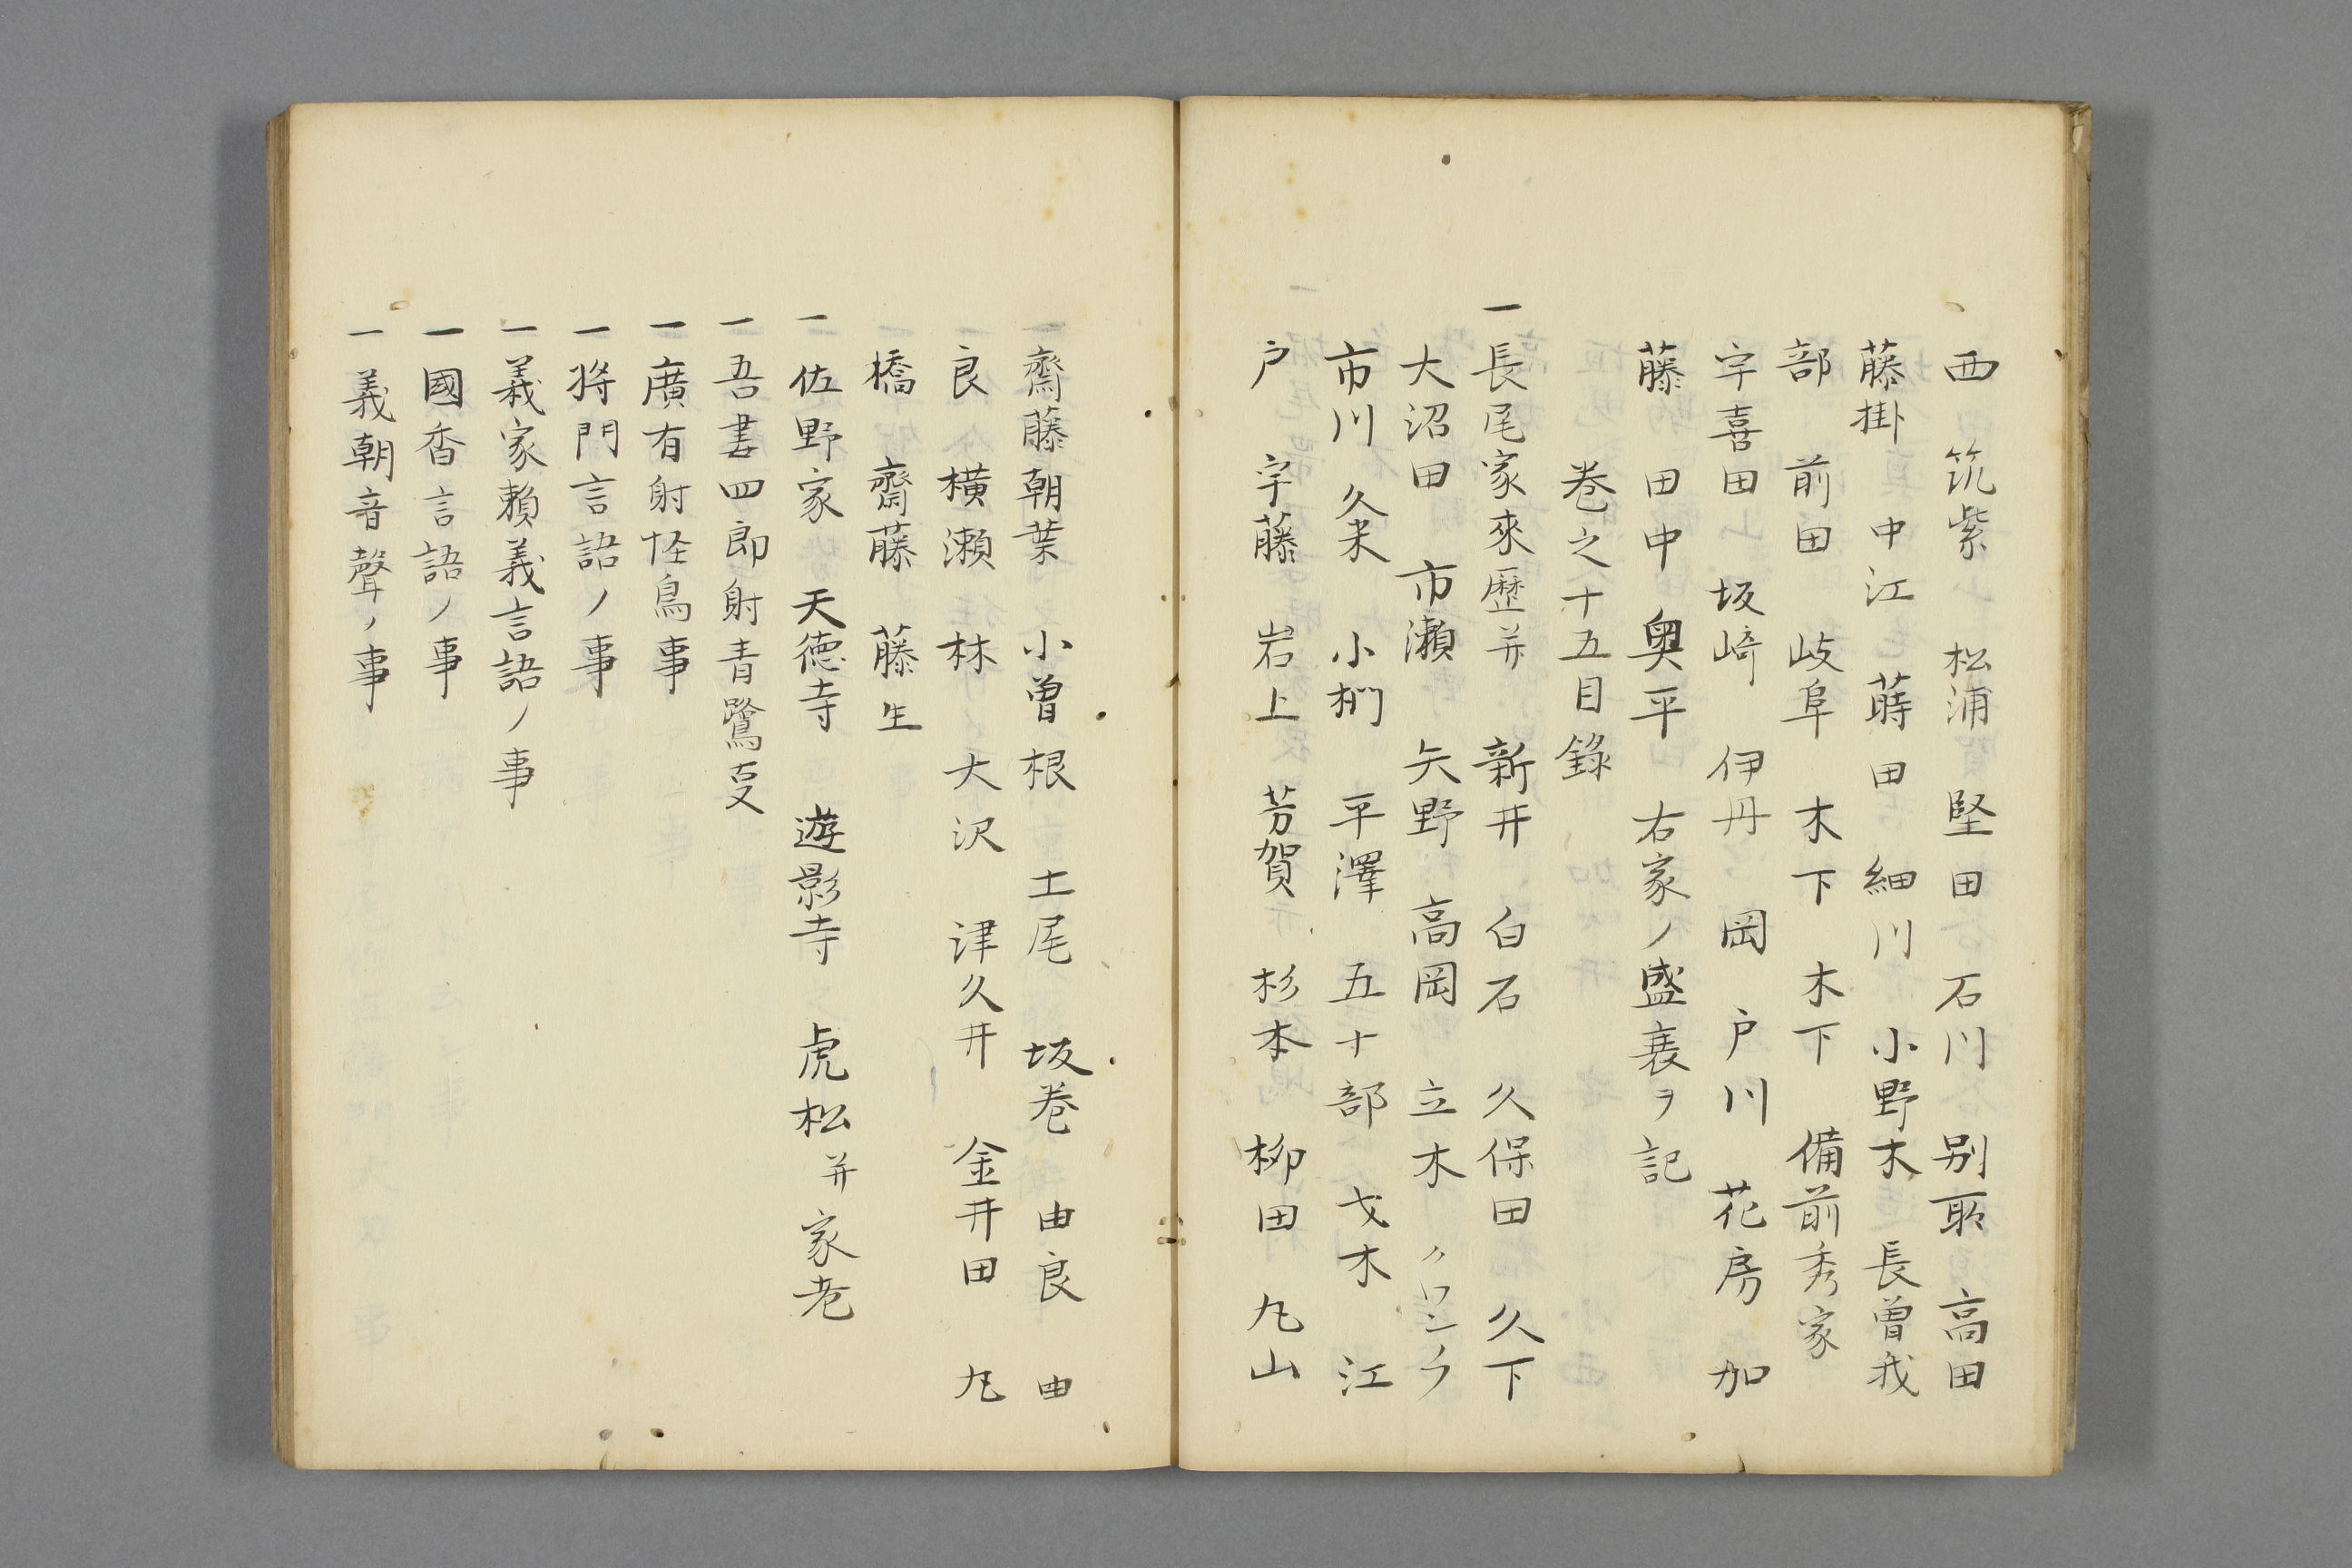 西　筑紫　松浦　堅田　石川　別所　高田
藤掛　中江　蒔田　細川　小野木　長曽我
部　前田　岐阜　木下　木下　備前秀家
宇喜田　坂崎　伊丹　岡　戸川　花房　加
藤　田中　奥平　右家ノ盛衰ヲ記
巻之十五目錄
一長尾家來歴并　新井　白石　久保田　久下
大沼田　市瀬　矢野　高岡　立木　クロンヌ
市川　久米　小椚　平澤　五十部　戈木　江
戸　宇藤　岩上　芳賀　杉本　柳田　丸山
齋藤　朝葉　小曽根　土尾　坂巻　由良　由
良　横瀬　林　大沢　津久井　金井田　丸
橋　齋藤　藤生
一佐野家　天徳寺　遊影寺　虎松并家老
一吾妻四郎射青鷺支
一廣有射怪鳥事
一将門言語ノ事
一義家頼義言語ノ事
一國香言語ノ事
一義朝音聲ノ事